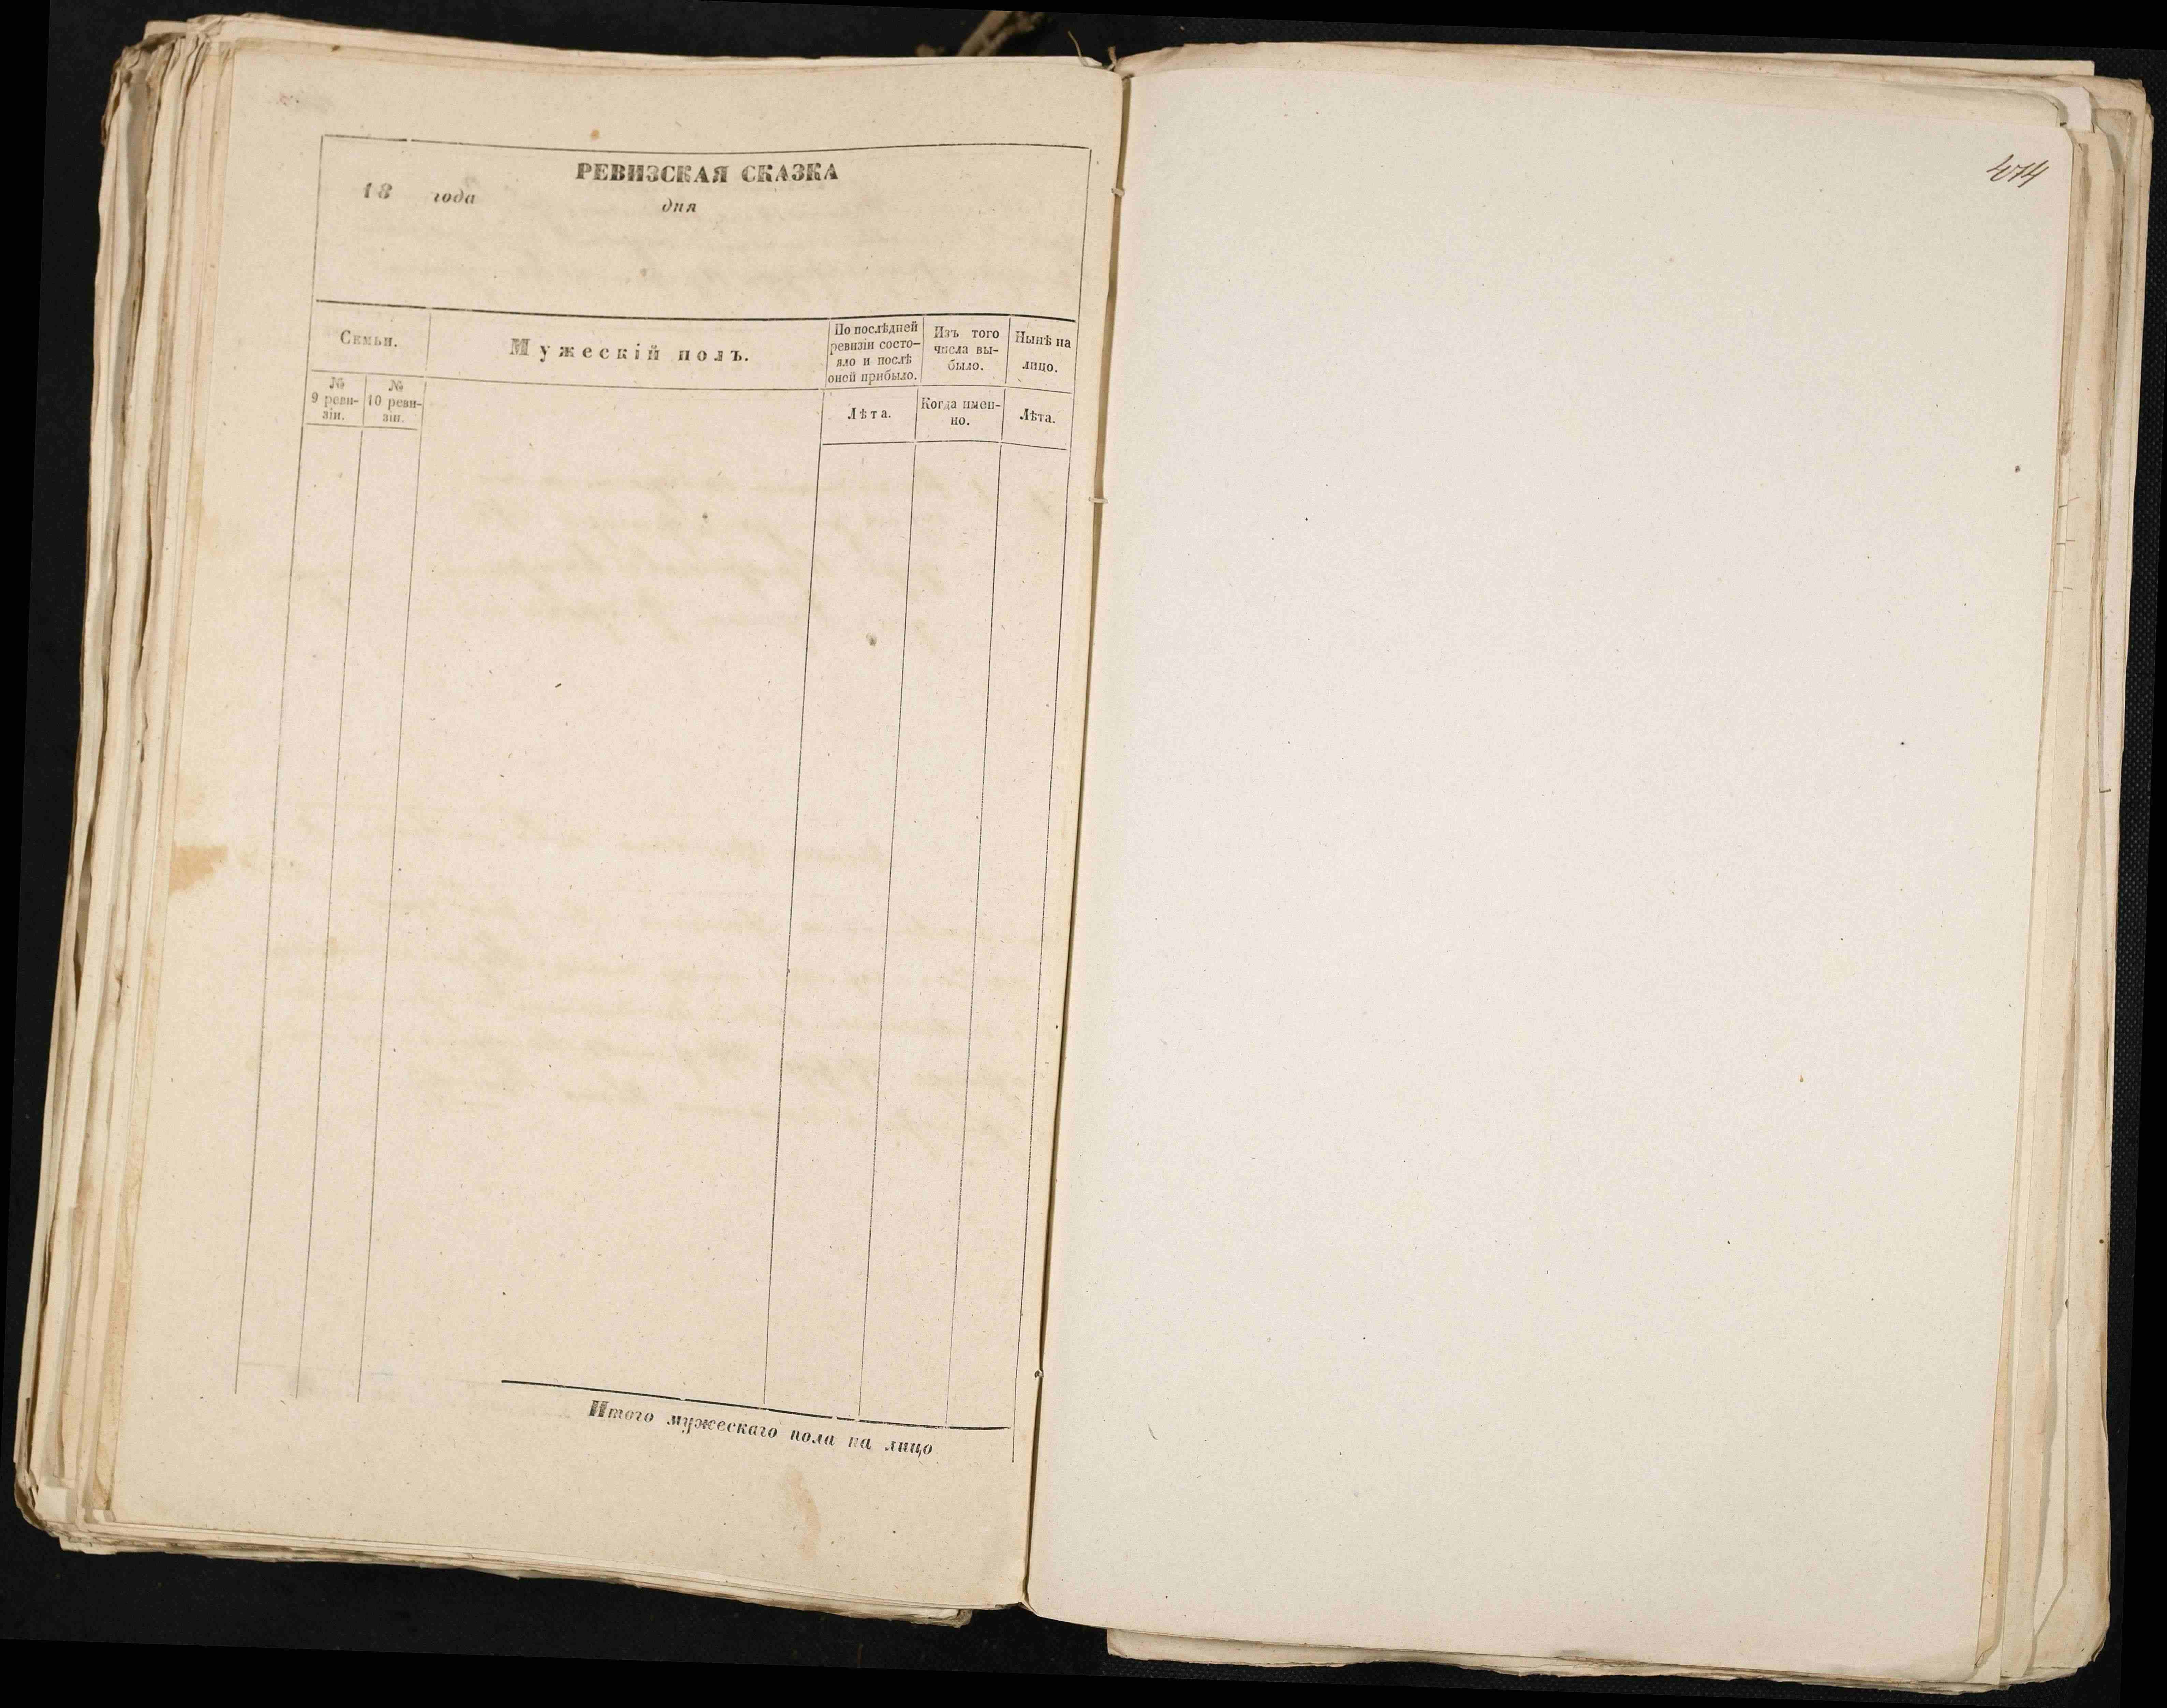 РЕВИЗСКАЯ СКАЗКА
18 года дня
Семьи.
Мужескій полъ.
По послѣдней
ревизіи состо-
яло и послѣ
оней прибыло.
Изъ того
числа вы-
было.
Нынѣ на
лицо.
№
9 реви-
зіи.
№
10 реви-
зіи.
Лѣта.
Когда имен-
но.
Лѣта.
Итого мужескаго пола на лицо
474